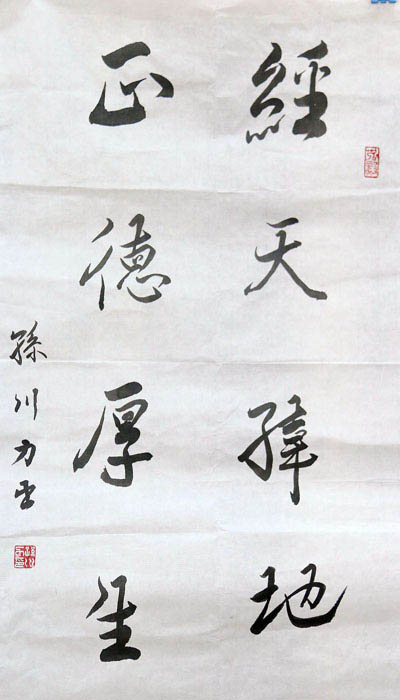 經天緯地
正德厚生
孫川力書